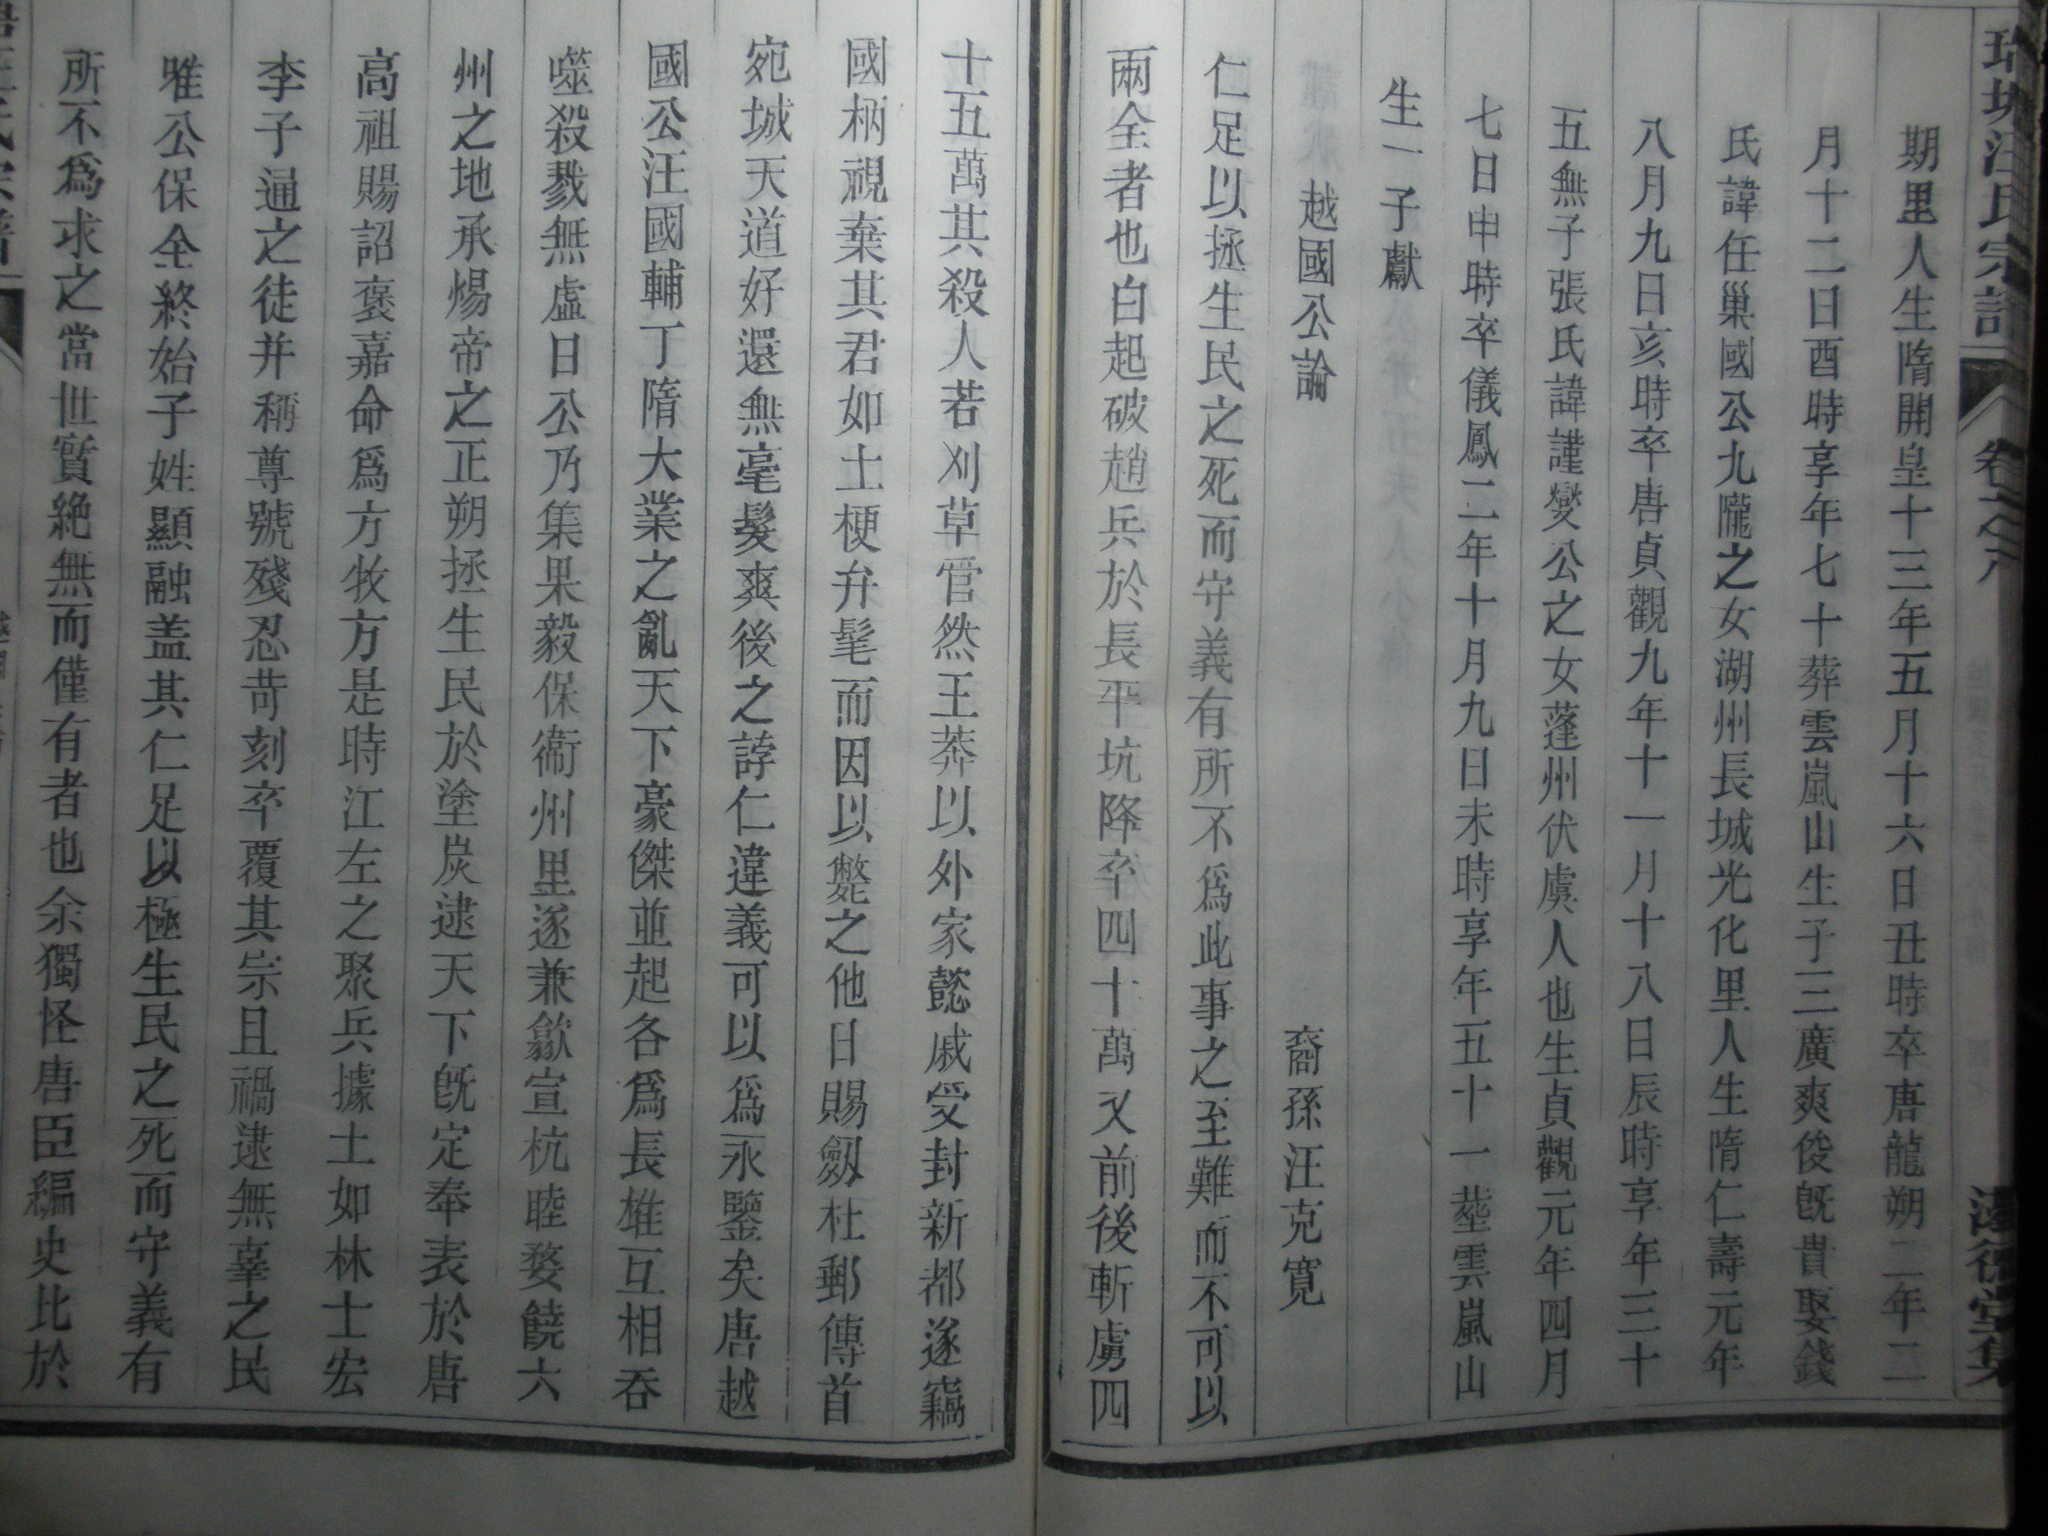 汪氏宗譜
期里人生隋開皇十三年五月十六日丑時卒唐龍朔二年二
月十二日酉時享年七十葬雲嵐山生子三廣爽俊旣貴娶錢
氏諱任巢國公九隴之女湖州長城光化里人生隋仁壽元年
八月九日亥時卒唐貞觀九年十一月十八日辰時享年三十
五無子張氏諱謹燮公之女蓬州伏虞人也生貞觀元年四月
七日申時卒儀鳳二年十月九日未時享年五十一塟雲嵐山
生一子獻
越國公論 裔孫汪克寬
仁足以拯生民之死而守義有所不爲此事之至難而不可以
兩全者也白起破趙兵於長平坑降卒四十萬又前後斬虜四
十五萬其殺人若刈草菅然王莽以外家懿戚受封新都遂竊
國柄視棄其君如土梗弁髦而因以斃之他日賜劔杜郵傳首
宛城天道好還無毫髮爽後之諄仁違義可以爲永鑒矣唐越
國公汪國輔丁隋大業之亂天下豪傑並起各爲長雄互相吞
噬殺戮無虛日公乃集果毅保衞州里遂兼歙宣杭睦婺饒六
州之地承煬帝之正朔拯生民於塗炭逮天下旣定奉表於唐
高祖賜詔褒嘉命爲方牧方是時江左之聚兵據土如林士宏
李子通之徒并稱尊號殘忍苛刻卒覆其宗且禍逮無辜之民
唯公保全終始子姓顯融盖其仁足以極生民之死而守義有
所不爲求之當世實絶無而僅有者也余獨怪唐臣編史比於